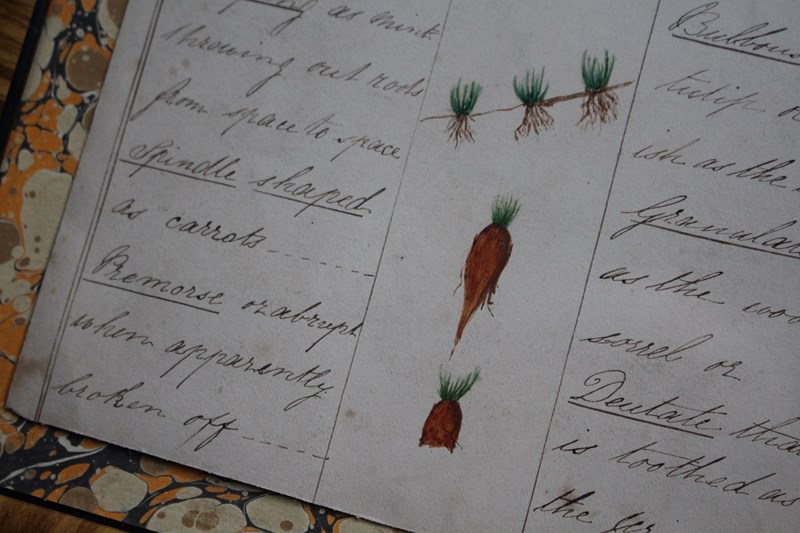 as mint
throwing out roots
from space to space
Spindle shaped
as carrots
Premorse or abrupt
when apparently
broken off
Bulbous
tulip
ish as the
Granulat
as the woo
sorrel or
Dentate tha
is toothed as
the